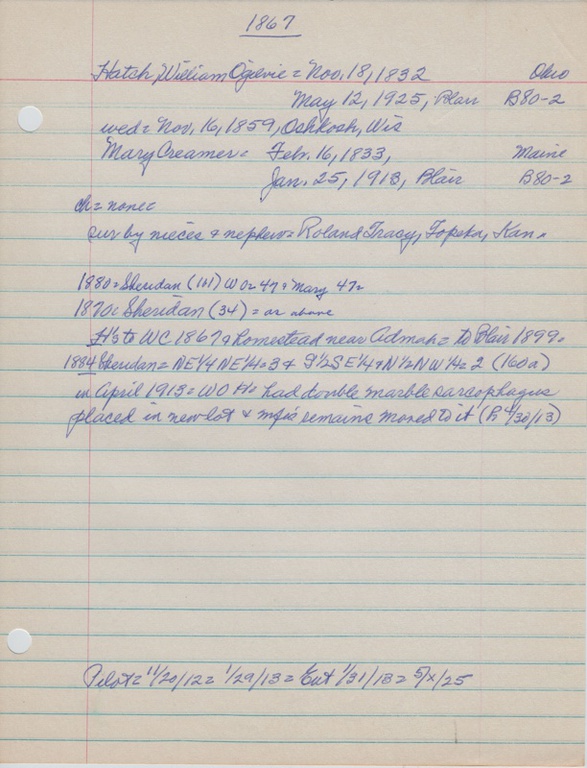 1867
Hatch William Ogilvie = Nov. 18, 1832 Ohio
May 12, 1925, Blair B80-2
wed = Nov. 16, 1859, Oshkosh, Wis
Mary Creamer = Feb. 16, 1833, Maine
Jan. 25, 1913, Blair B80-2
ch = none
sur by nieces & nephew = Roland Tracy, Topeka, Kan.
1880 = Sheridan (141) WO = 47 & Mary 47 =
1870 = Sheridan (34) = as above
H's to WC 1867 & homestead near Admah = to Blair 1899.
1884 Sheridan = NE¼ NE¼ = 3 & S½ SE¼ & N½ NW¼ = 2 (160a)
in April 1913 = WO H. had double marble sarcophagus
placed in new lot & wife's remains moved to it (P. 4/30/13)
Pilot = 11/20/12 = 1/29/13 = Ent 1/31/13 = 5/x/25